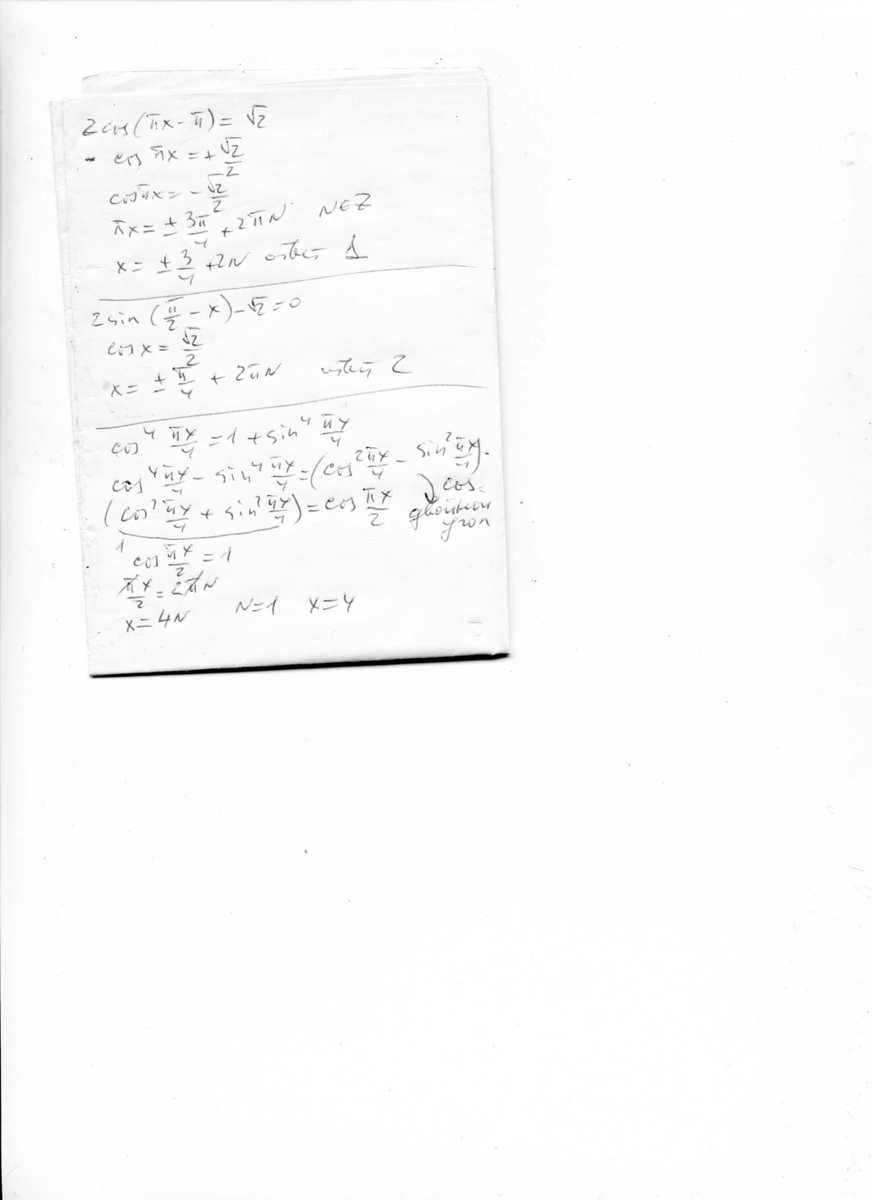 2cos(πx - π) = √2
- cos πx = +√2/2
cos πx = -√2/2
πx = ± 3π/4 + 2πN   N∈Z
x = ± 3/4 + 2N   ответ 1
2 sin (π/2 - x) - √2 = 0
cos x = √2/2
x = ± π/4 + 2πN   ответ 2
cos⁴ πx/4 = 1 + sin⁴ πx/4
cos⁴ πx/4 - sin⁴ πx/4 = (cos² πx/4 - sin² πx/4)·
(cos² πx/4 + sin² πx/4) = cos πx/2   cos
двойной
угол
1
cos πx/2 = 1
πx/2 = 2πN
x = 4N   N=1   x=4